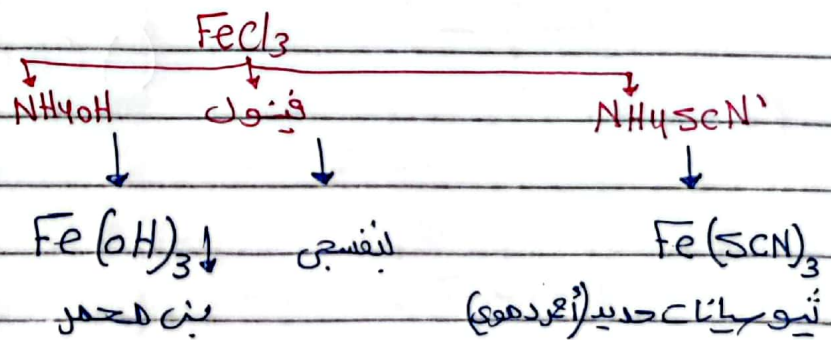 FeCl3
NH4OH فينول NH4SCN
Fe(OH)3↓ بنفسجى Fe(SCN)3
بنى محمر ثيوسيانات حديد (أحمر دموى)